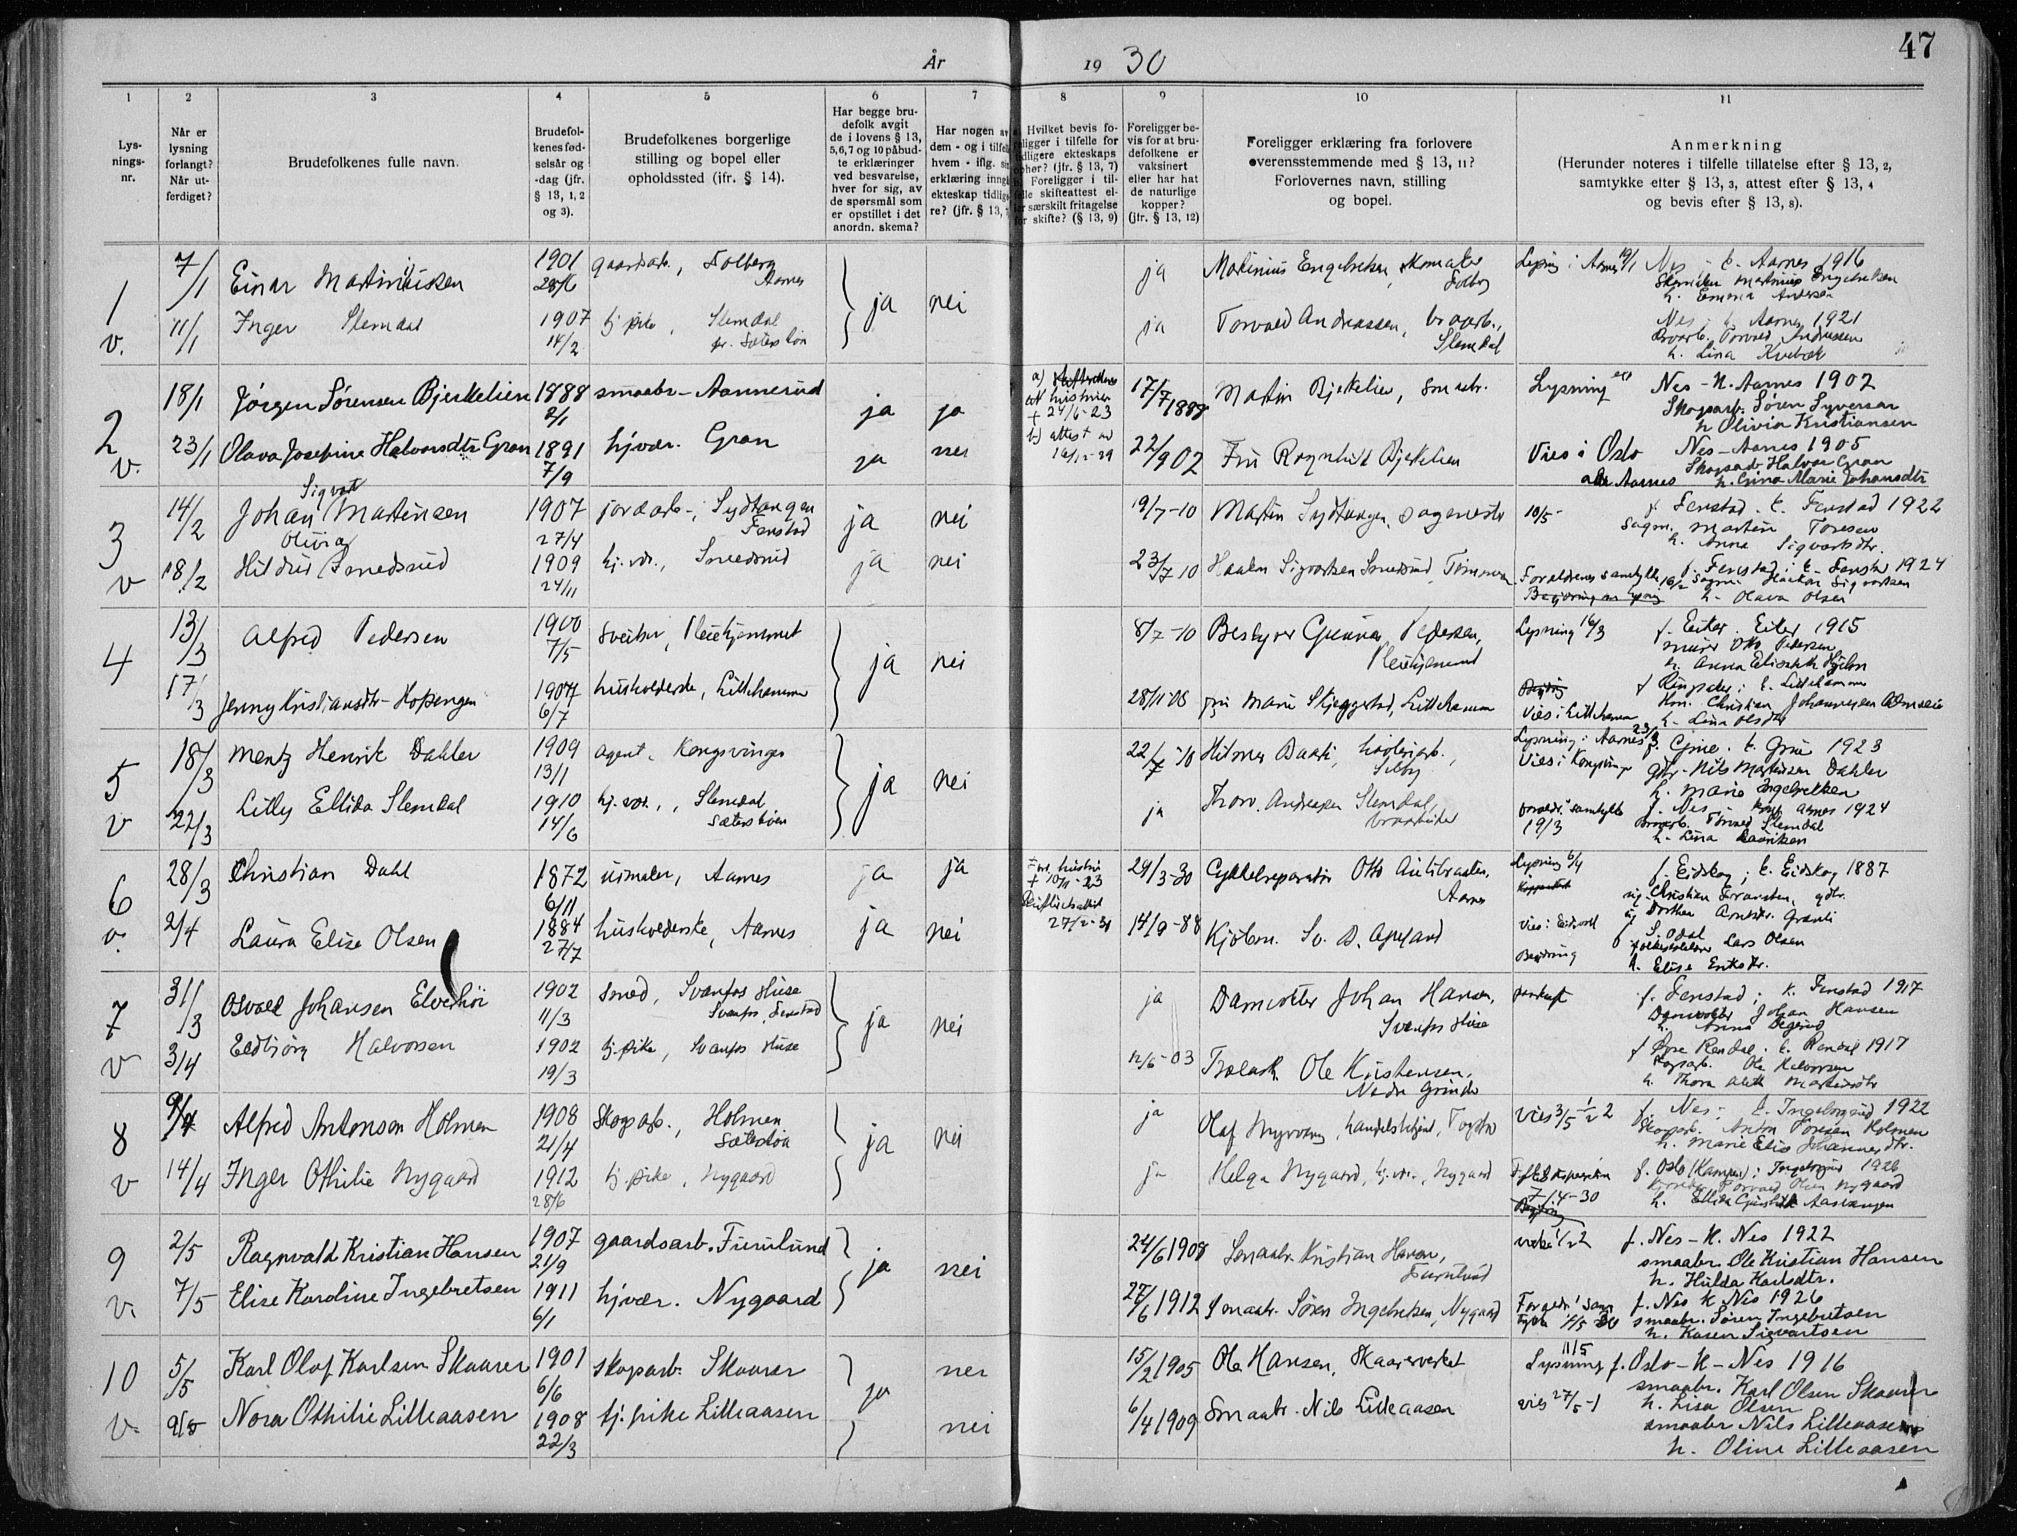 47
År 19 30
1
2
3
4
5
6
7
8
9
10
11
Lys-
nings-
nr.
Når er
lysning
forlangt?
Når ut-
ferdiget?
Brudefolkenes fulle navn.
Brudefol-
kenes fød-
selsår og
-dag (jfr.
§ 13, 1, 2
og 3).
Brudefolkenes borgerlige
stilling og bopel eller
opholdssted (ifr. § 14).
Har begge bru-
defolk avgit
de i lovens § 13,
5,6,7 og 10 påbud-
te erklæringer
ved besvarelse,
hver for sig, av
de spørsmål som
er opstillet i det
anordn. skema?
Har nogen av
dem - og i tilfel
hvem - iflg.
erklæring inng
ekteskap tidlig
re? (jfr. § 13,
Hvilket bevis fo-
religger i tilfelle for
tidligere ekteskaps
ophør? (jfr. § 13, 7)
Foreligger i til-
felle skifteattest el-
særskilt fritagelse
for skifte? (§ 13, 9)
Foreligger be-
vis for at bru-
defolkene er
vaksinert
eller har hat
de naturlige
kopper?
(jfr. § 13, 12)
Foreligger erklæring fra forlovere
overensstemmende med § 13, 11?
Forlovernes navn, stilling
og bopel.
Anmerkning
(Herunder noteres i tilfelle tillatelse efter § 13, 2,
samtykke efter § 13, 3, attest efter § 13, 4
og bevis efter § 13, 8).
1
v.
7/1
Einar Martiniussen
1901
gaardsarb., Solberg
Aarnes
ja
nei
ja
Martinius Engebretsen, skomaker
Solberg
Lysning i Aarnes 19/1
Nes - k. Aarnes 1916
Skomaker Martinius Engebretsen
h. Emma Andersen
11/1
Inger Slemdal
1907
14/2
tj. pike, Slemdal
pr. Sæterstøa
ja
Torvald Andreassen, braarb.,
Slemdal
Nes - k. Aarnes 1921
Torvald Andreassen
h. Lina Kvebæk
2
v.
18/1
Jørgen Sørensen Bjerkelien
1888
2/1
smaabr - Aannerud
ja
ja
a)
hustrues
+ 24/6-23
b) attest av
17/7 1888
Martin Bjerkelien, Smaabr.
Lysning
Nes - K. Aarnes 1902
Skogsarb. Søren Syversen
h Olivia Kristiansen
23/1
Olava Josefine Halvorsdtr Gran
1891
7/9
hjvær. Gran
ja
nei
22/9 02
Fru Ragnhild Bjerkelien
Vies i Oslo
Aarnes
Nes - Aarnes 1905
Skogsarb Halvor Gran
h. Anna Marie Johansdtr
3
v
14/2
Johan Sigvat Martinsen
1907
27/4
jordarb-, Sydtangen
Fenstad
ja
nei
19/7-10
Martin Sydtangen, sagmester
10/5-
f Fenstad. k. Fenstad 1922
Sagm. Martin Toresen
h. Anna Sigvartsdtr.
18/2
Hildur Olivia Smedsrud
1909
24/11
hj. vær., Smedsrud
ja
nei
23/7 10
Haakon Sigvartsen Smedsrud, Tømmerm
Foreldrenes samtykke 16/2
f. Fenstad; k. Fenstad 1924
Sagm. Haakon Sigvartsen
h. Olava Olsen
4
13/3
Alfred Pedersen
1900
7/5
sveiser, Pleiehjemmet
ja
nei
8/7-10
Bestyrer Gunnar Pedersen,
Pleiehjemmet
Lysning 16/3
f. Eiter. Eiter 1915
murer Otto Pedersen
h. Anna Elisabeth Hjelm
17/3
Jenny Kristiansdtr Kopangen
1907
6/7
husholderske, Lillehammer
28/11-08
Fru Marie Skjeggestad, Lillehammer
Vies i Lillehammer
f Ringsaker; k. Lillehammer
h. Lina Olsdtr
5
v
18/3
Mentz Henrik Dahler
1909
13/1
agent, Kongsvinger
ja
nei
22/7-10
Hilmer Baarli, høvleriarb.,
Selby
Lysning i Aarnes 23/3
Vies i Kongsvinger
f. Grue. k. Grue 1923
gbr. Nils Martinsen Dahler
h. Marie Ingebretsen
22/3
Lilly Ellida Slemdal
1910
14/6
hj. vær., Slemdal
Sæterstøen
ja
Thorv. Andreassen Slemdal,
braarbeider
foreldr. samtykke
19/3
f. Nes - konf Aarnes 1924
Torvald Slemdal
h. Lina
6
v.
28/3
Christian Dahl
1872
6/11
urmaker, Aarnes
ja
ja
hustru
+ 10/11-23
27/2-30
29/3-30
Cykkelreparatør Otto
Aarnes
Lysning 6/4
f. Eidskog; k. Eidskog 1887
ug. Christian Fransten, gdtr.
ug Dorthea Arnesdtr. Granli
2/4
Laura Elise Olsen
1884
27/7
husholderske, Aarnes
ja
nei
14/9-88
Kjøbm. Sv. B. Apeland
vies i Eidsvold
Begjæring
f S. Odal
Lars Olsen
h. Elise Eriksdtr.
7
v
31/3
Osvald Johansen Elverhøi
1902
11/3
smed, Svanfos Huse
Svanfos, Fenstad
ja
nei
ja
Damvokter Johan Hansen,
Svanfos Huse
f. Fenstad; k. Fenstad 1917
Damvokter Johan Hansen
h. Anna Degerud
3/4
Eldbjørg Halvorsen
1902
19/3
tj. pike, Svanfos Huse
12/6-03
Trælastk. Ole Kristensen,
Nedre Grinder
f Øvre Rendal; k. Rendal 1917
Skogsarb. Ole Halvorsen
h. Thora Alette Martinsdtr
8
v
9/4
Alfred Antonsen Holmen
1908
21/4
Skogsarb., Holmen
Sæterstøa
ja
nei
ja
Olaf Myrvang, handelsbetjent,
Vies 3/5 ½ 2
f. Nes - k. Ingeborgrud 1922
Skogsarb. Anton Toresen Holmen
h. Marie Elise Johannesdtr.
14/4
Inger Othilie Nygaard
1912
28/6
tj. pike, Nygaard
ja
Helga Nygaard, hj. vær., Nygaard
7/4-30
f. Oslo (Kampen); Ingeborgrud 1926
Torvald Olsen Nygaard
h. Ellida Gunhilde Aaslangen
9
v.
2/5
Ragnvald Kristian Hansen
1907
21/9
gaardsarb. Furulund
ja
nei
24/6 1908
Smaabr. Kristian Hansen,
Furulund
f. Nes - K. Nes 1922
smaabr. Ole Kristian Hansen
h. Hulda Karlsdtr.
7/5
Elise Karoline Ingebretsen
1911
6/1
hjvær. Nygaard
27/6 1912
Smaabr. Søren Ingebretsen, Nygaard
Foreldr. sam
tykke 2/5 30
f. Nes K Nes 1926
smaabr. Søren Ingebretsen
h. Karen Sigvartsen
10
v.
5/5
Karl Olaf Karlsen Skaarer
1901
6/6
skogsarb. Skaarer
ja
nei
15/2 1905
Ole Hansen, Skaarerverket
Lysning 11/5
f. Oslo - K - Nes 1916
smaabr. Karl Olsen Skaarer
h. Lisa Olsen
Nora Othilie Lilleaasen
1908
22/3
tj. pike Lilleaasen
nei
6/4 1909
Smaabr. Nils Lilleaasen
vies 27/5-1
smaabr Nils Lilleaasen
h. Oline Lilleaasen